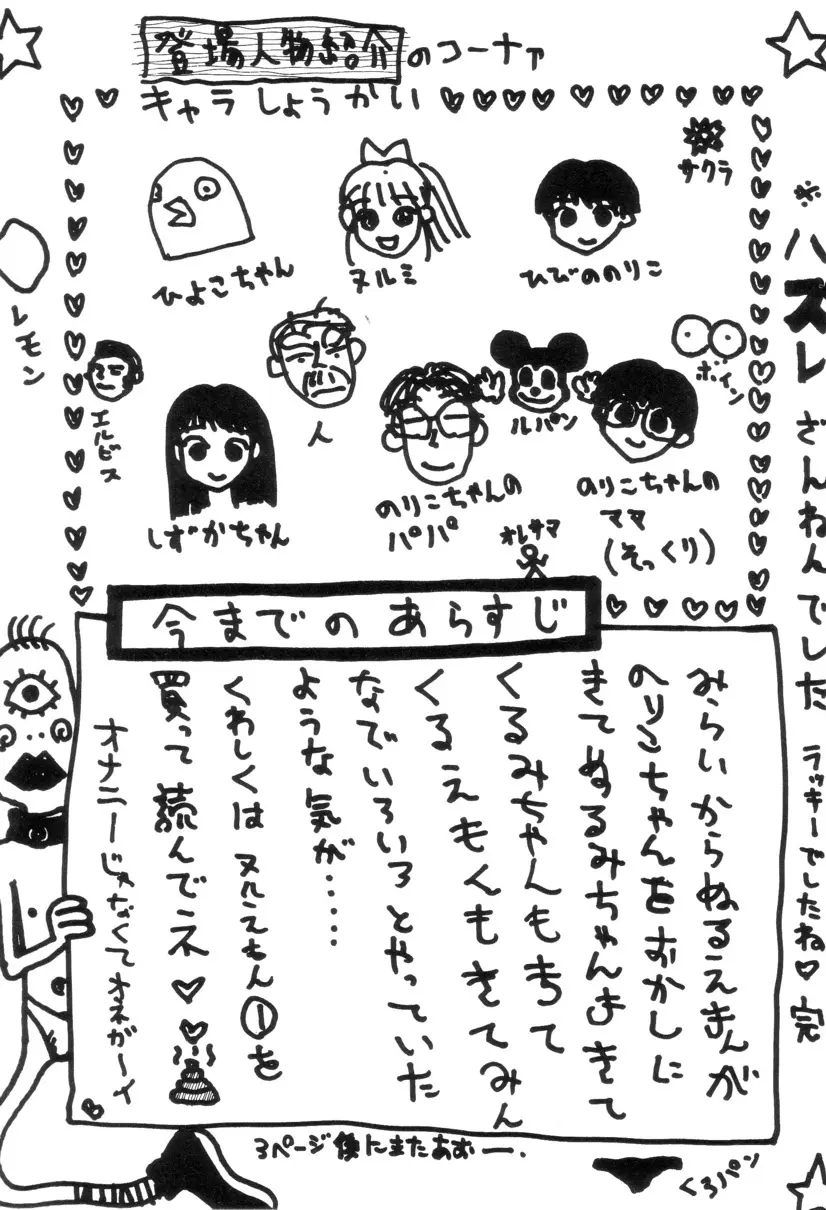 登場人物紹介のコーナァ
キャラしょうかい
サクラ
ひよこちゃん
ヌルミ
ひびののりこ
レモン
エルビス
人
ルパン
ボイン
しずかちゃん
のりこちゃんの
パパ
のりこちゃんの
ママ
(そっくり)
オレサマ
※ハズレ ざんねんでした ラッキーでしたね♡完
今までのあらすじ
みらいからぬるえもんが
のりこちゃんをおかしに
きてぬるみちゃんもきて
くるみちゃんもきて
くるえもんもきてみん
なでいろいろとやっていた
ような気が‥‥
くわしくはヌルえもん①を
買って読んでネ♡♡
オナニーじゃなくてオネガーイ
3ページ後にまたあおー.
くろパン